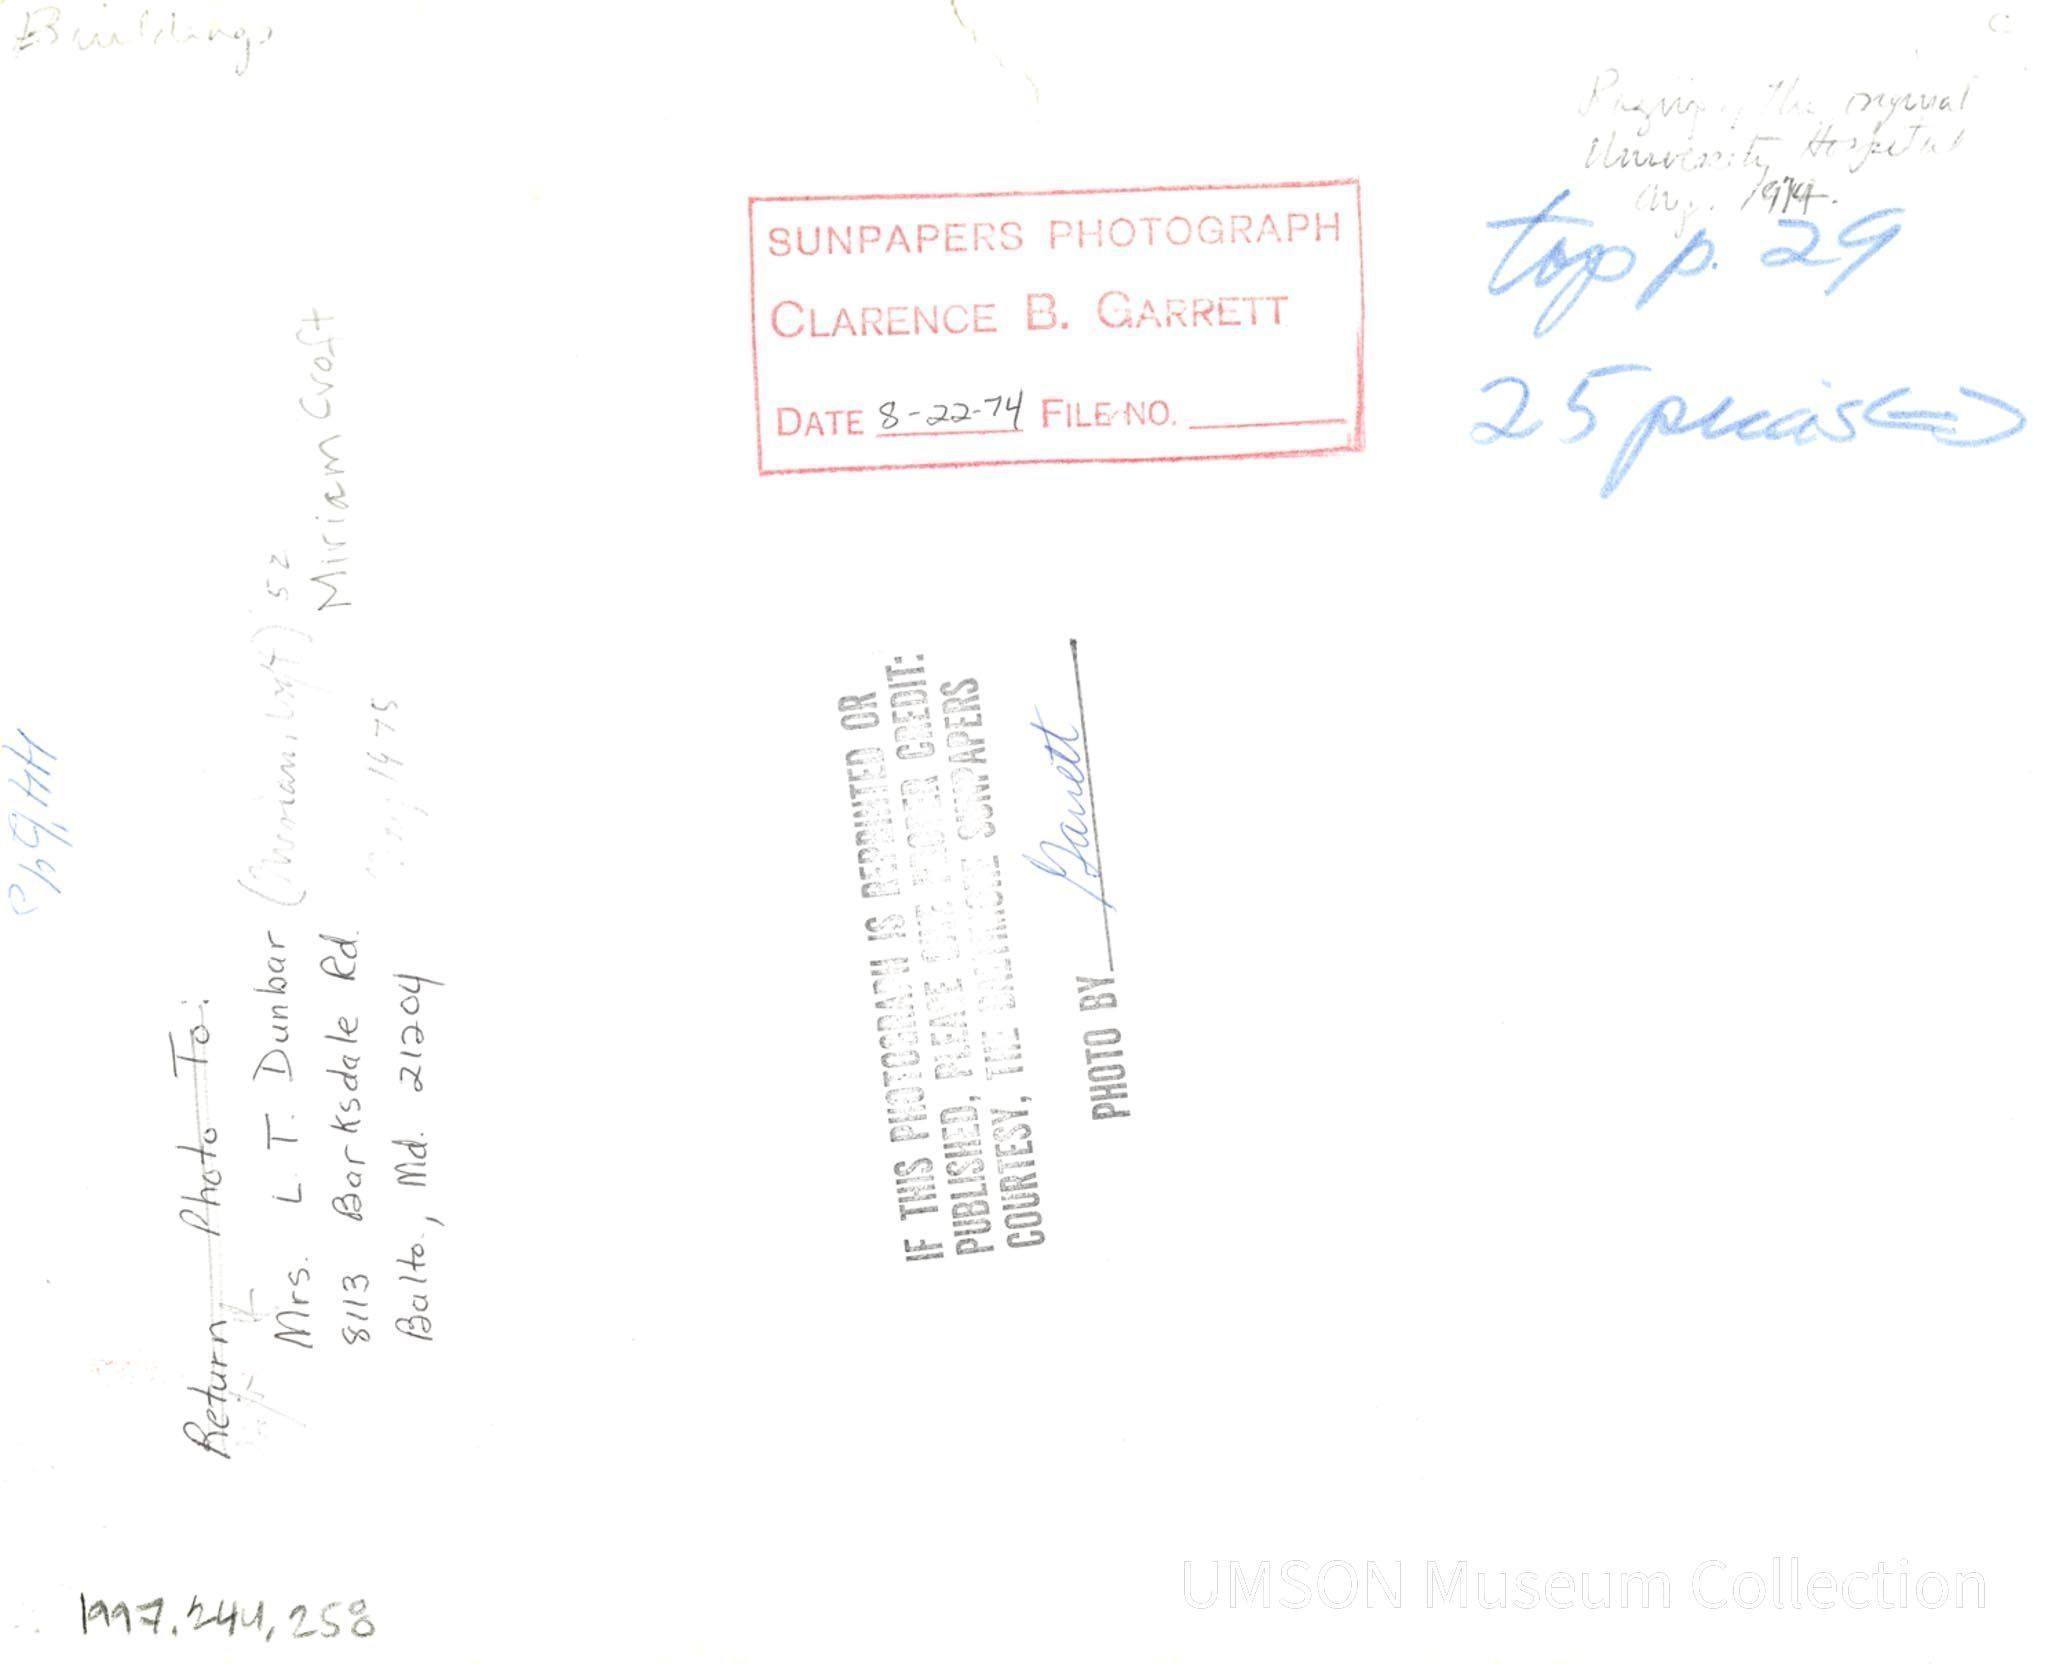 Buildings
Razing of the original
University Hospital
Aug. 1974.
top p. 29
25 picas
SUNPAPERS PHOTOGRAPH
CLARENCE B. GARRETT
DATE 8-22-74 FILE NO.
IF THIS PHOTOGRAPH IS REPRINTED OR
PUBLISHED, PLEASE GIVE PROPER CREDIT:
COURTESY, THE BALTIMORE SUNPAPERS
PHOTO BY Garrett
Return Photo To:
Mrs. L T. Dunbar (Miriam Croft) '52
Miriam Croft
8113 Barksdale Rd.
Balto., Md. 21204
1975
1997.244.258
UMSON Museum Collection